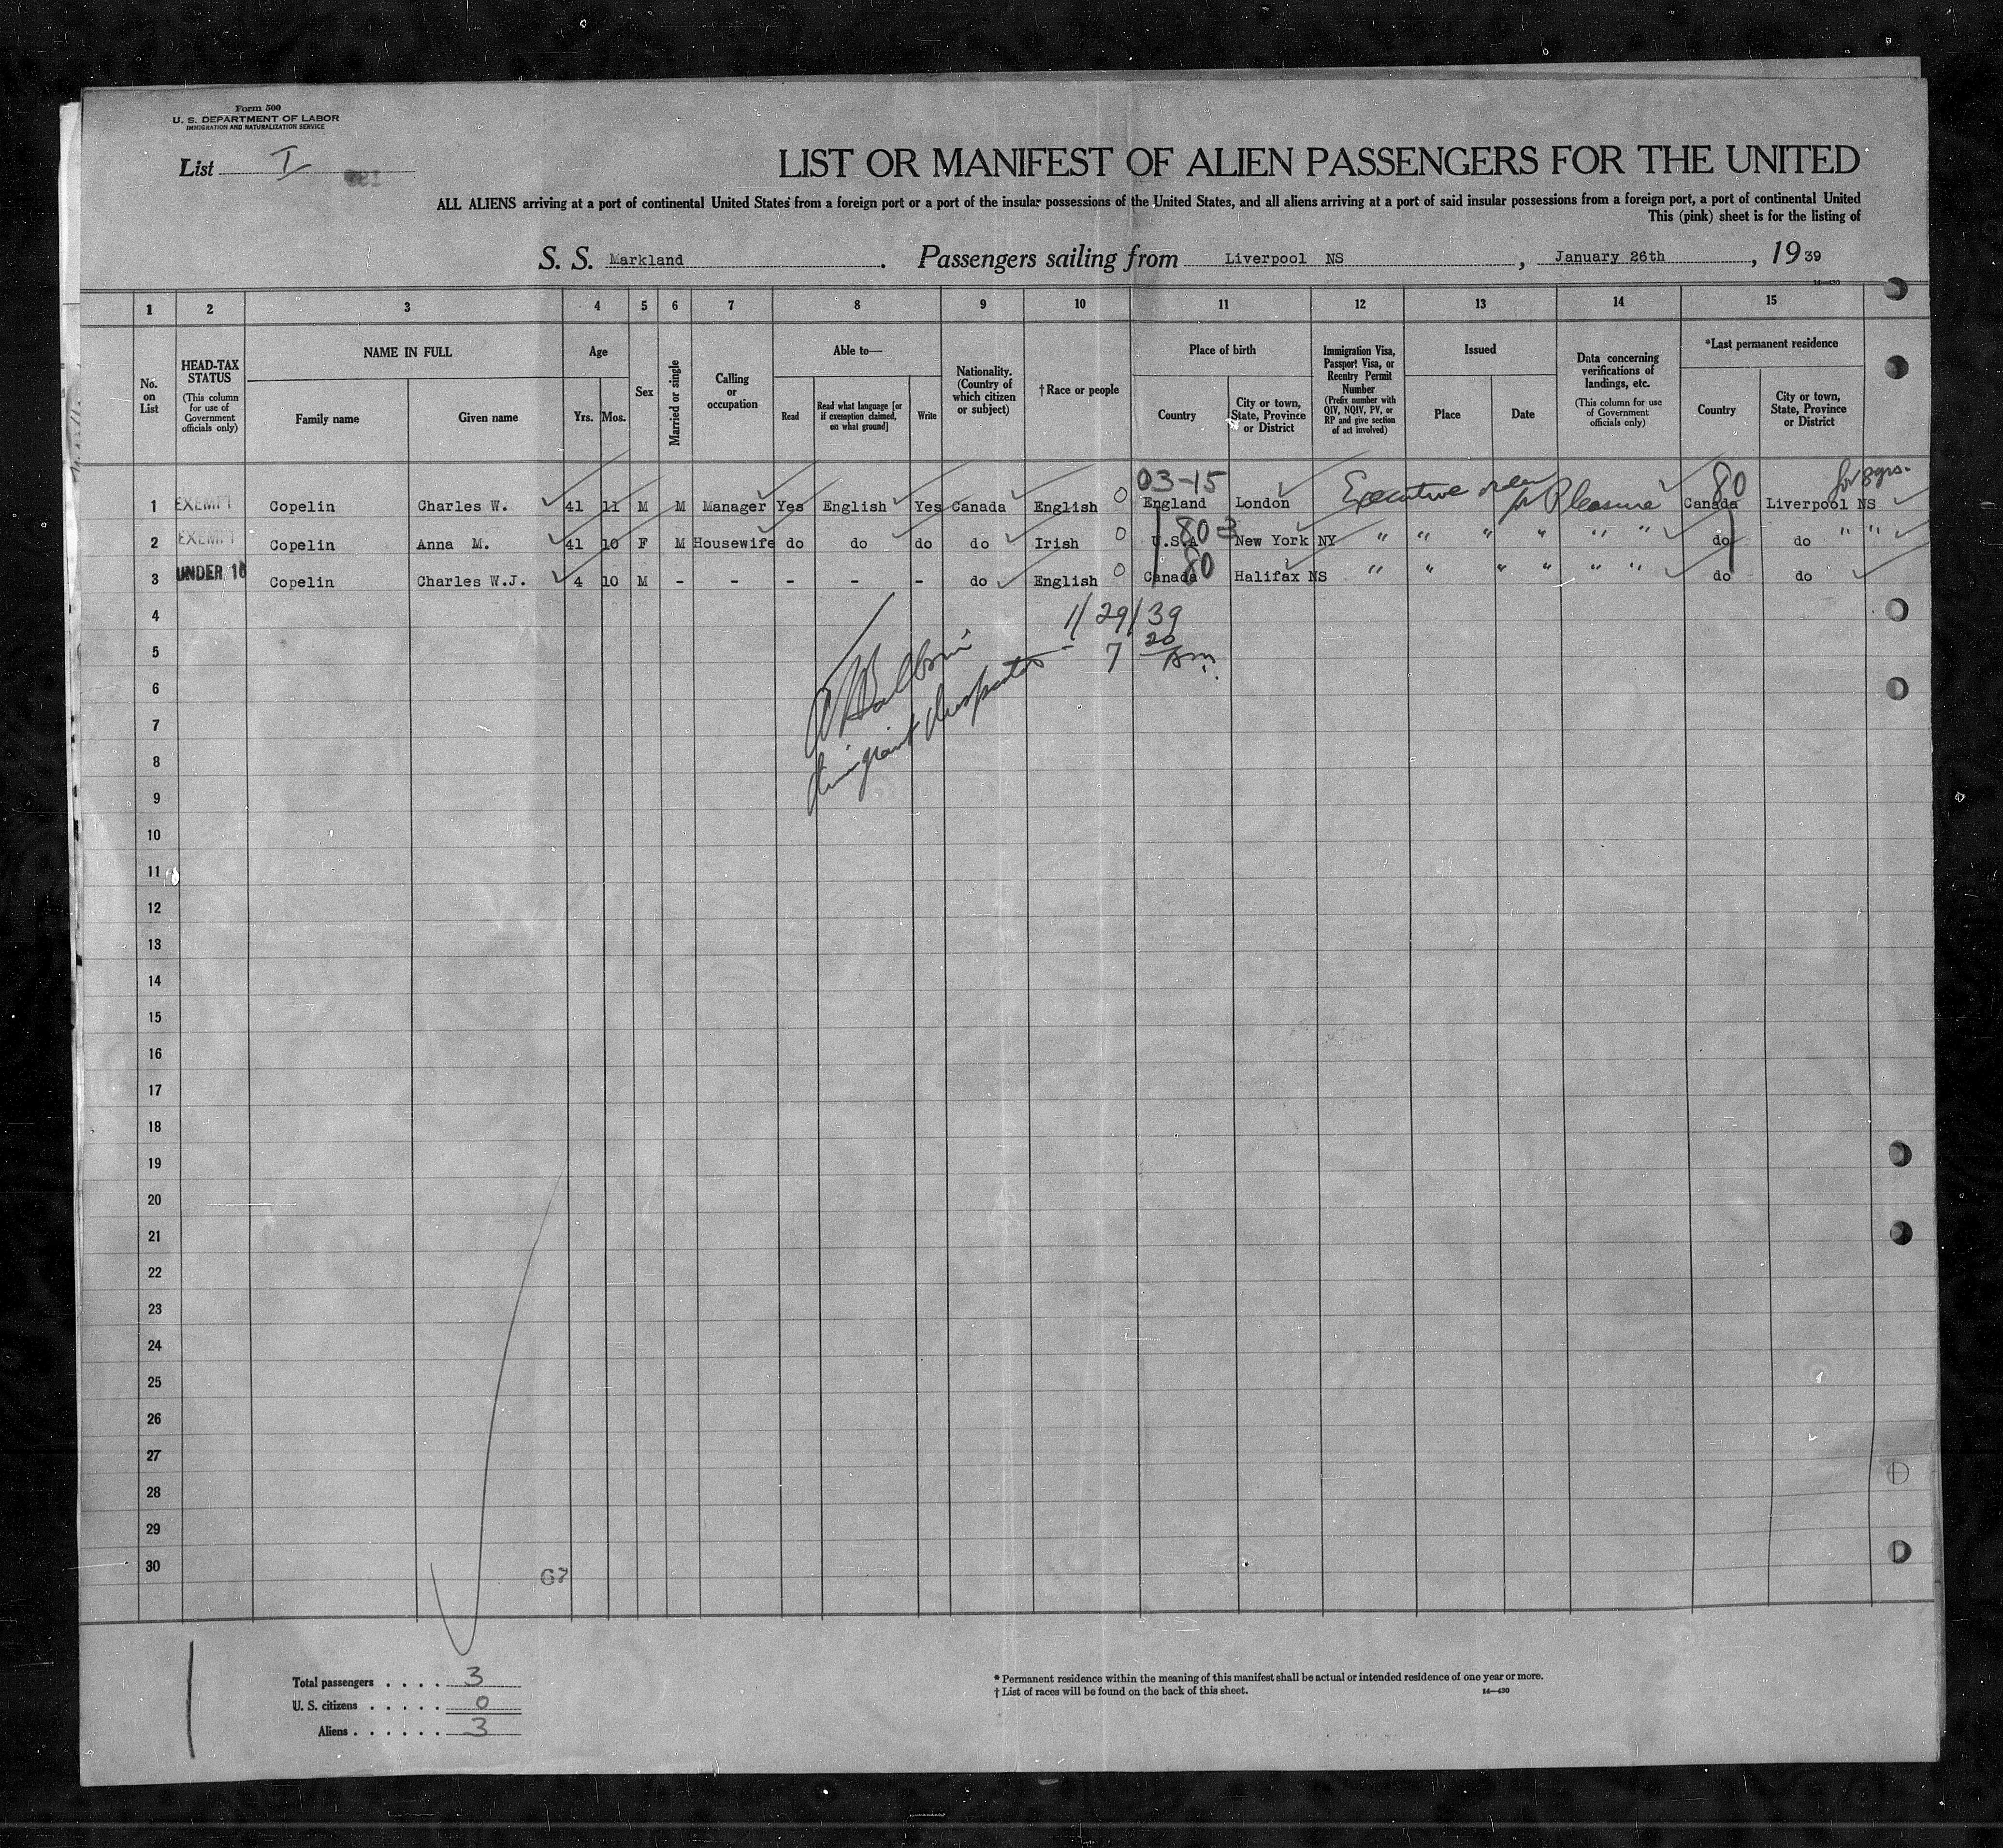 Form 500
U. S. DEPARTMENT OF LABOR
IMMIGRATION AND NATURALIZATION SERVICE
List I
LIST OR MANIFEST OF ALIEN PASSENGERS FOR THE UNITED
ALL ALIENS arriving at a port of continental United States from a foreign port or a port of the insular possessions of the United States, and all aliens arriving at a port of said insular possessions from a foreign port, a port of continental United
This (pink) sheet is for the listing of
S. S. Markland. Passengers sailing from Liverpool NS, January 26th, 1939
14—430
1 2 3 4 5 6 7 8 9 10 11 12 13 14 15
No. on List
HEAD-TAX STATUS (This column for use of Government officials only)
NAME IN FULL Family name Given name
Age Yrs. Mos.
Sex
Married or single
Calling or occupation
Able to— Read Read what language [or if exemption claimed, on what ground] Write
Nationality. (Country of which citizen or subject)
†Race or people
Place of birth Country City or town, State, Province or District
Immigration Visa, Passport Visa, or Reentry Permit Number (Prefix number with QIV, NQIV, PV, or RP and give section of act involved)
Issued Place Date
Data concerning verifications of landings, etc. (This column for use of Government officials only)
*Last permanent residence Country City or town, State, Province or District
03-15 80 for 8yrs.
1 EXEMPT Copelin Charles W. 41 11 M M Manager Yes English Yes Canada English 0 England London Executive order for Pleasure Canada Liverpool NS
803
2 EXEMPT Copelin Anna M. 41 10 F M Housewife do do do do Irish 0 U.S.A New York NY " " " " " " do do " "
80
3 UNDER 16 Copelin Charles W.J. 4 10 M - - - - - do English 0 Canada Halifax NS " " " " " " do do
4
1/29/39
5
7 20 Am.
Immigrant Inspector
6
7
8
9
10
11
12
13
14
15
16
17
18
19
20
21
22
23
24
25
26
27
28
29
30
67
Total passengers . . . . 3
U. S. citizens . . . . . 0
Aliens . . . . . . 3
* Permanent residence within the meaning of this manifest shall be actual or intended residence of one year or more.
† List of races will be found on the back of this sheet.
14—430